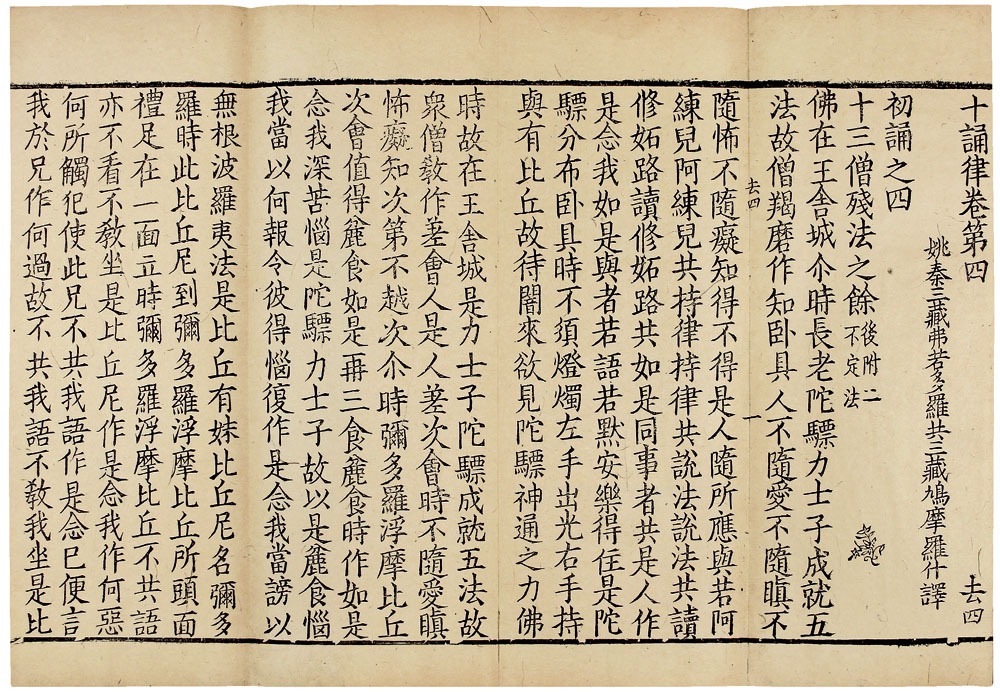 十誦律卷第四　去四
姚秦三藏弗若多羅共三藏鳩摩羅什譯
初誦之四
十三僧殘法之餘後附二不定法
佛在王舍城尒時長老陀驃力士子成就五
法故僧羯磨作知卧具人不隨愛不隨瞋不
去四　一
隨怖不隨癡知得不得是人隨所應與若阿
練兒阿練兒共持律持律共說法說法共讀
修妬路讀修妬路共如是同事者共是人作
是念我如是與者若語若默安樂得住是陀
驃分布卧具時不須燈燭左手出光右手持
與有比丘故待闇來欲見陀驃神通之力佛
時故在王舍城是力士子陀驃成就五法故
衆僧敎作差會人是人差次會時不隨愛瞋
怖癡知次第不越次尒時彌多羅浮摩比丘
次會值得麁食如是再三食麁食時作如是
念我深苦惱是陀驃力士子故以是麁食惱
我當以何報令彼得惱復作是念我當謗以
無根波羅夷法是比丘有妹比丘尼名彌多
羅時此比丘尼到彌多羅浮摩比丘所頭面
禮足在一面立時彌多羅浮摩比丘不共語
亦不看不敎坐是比丘尼作是念我作何惡
何所觸犯使此兄不共我語作是念已便言
我於兄作何過故不共我語不敎我坐是比